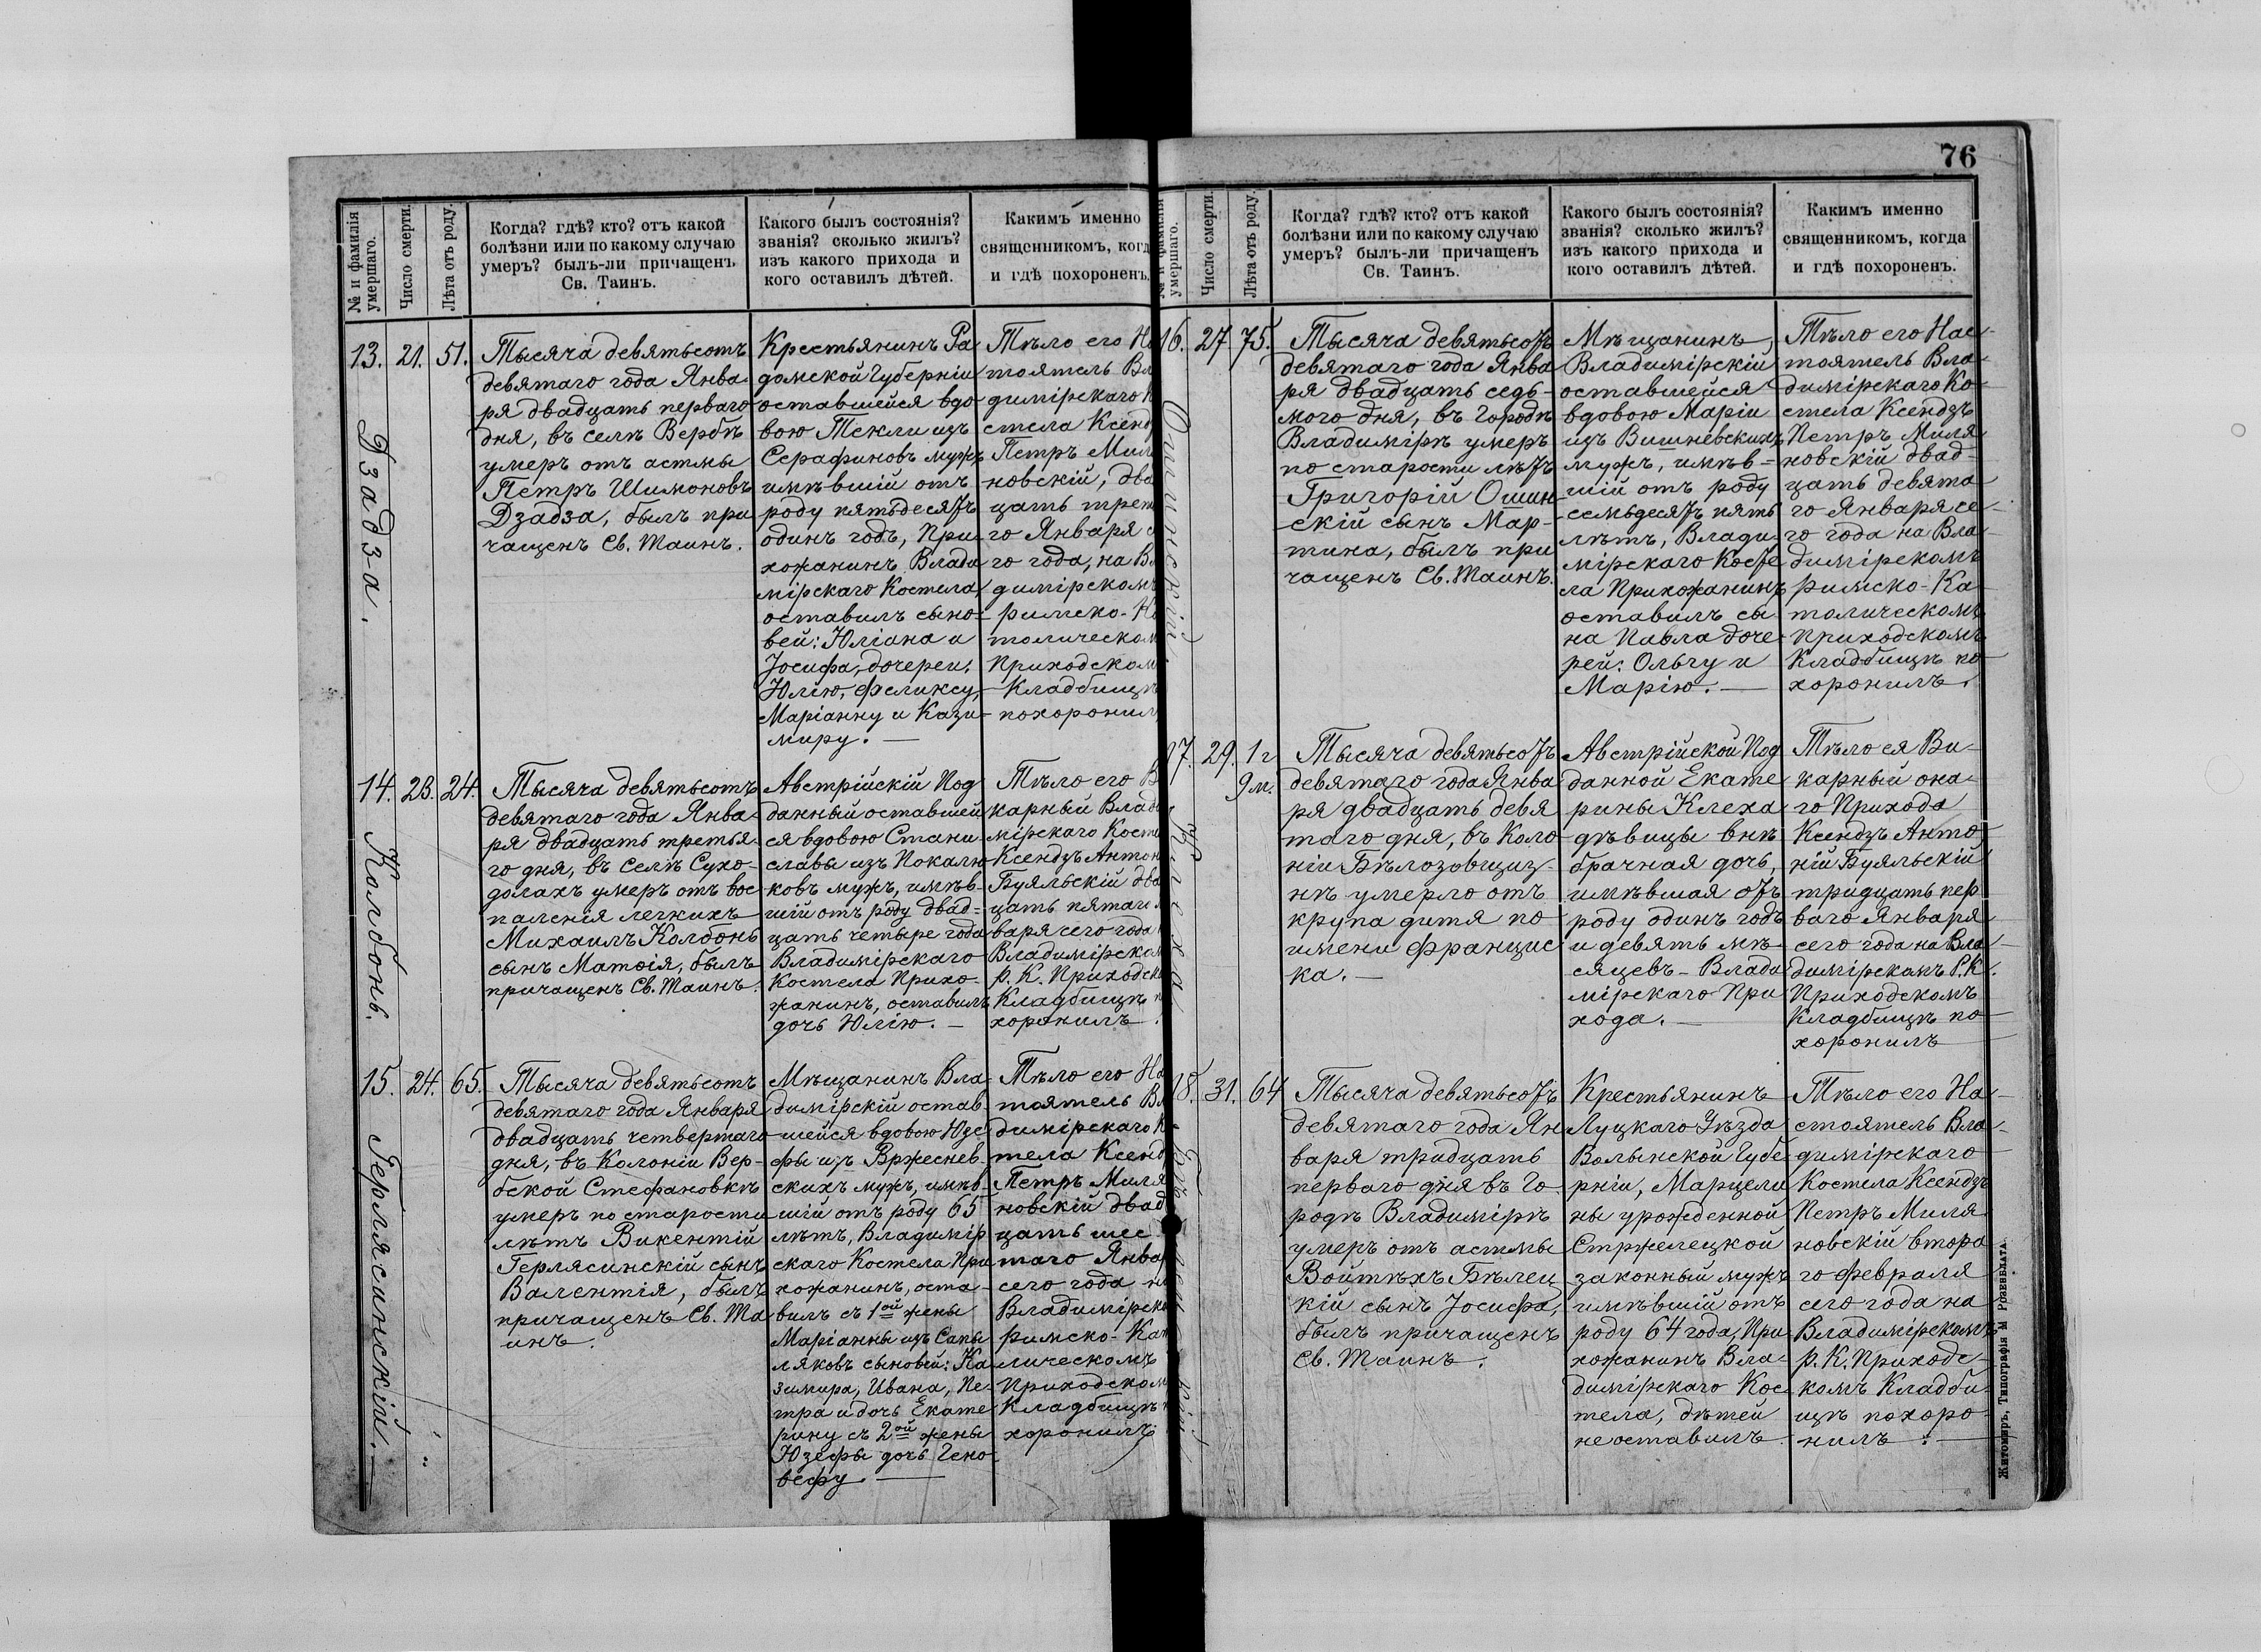 76
№ и фамилія
умершаго.
Число смерти.
Лѣта отъ роду.
Когда? гдѣ? кто? отъ какой
болѣзни или по какому случаю
умеръ? былъ-ли причащенъ
Св. Таинъ.
Какого былъ состоянія?
званія? сколько жилъ?
изъ какого прихода и
кого оставилъ дѣтей.
Какимъ именно
священникомъ, когд
и гдѣ похороненъ.
13.
Дзадза.
21.
51.
Тысяча девятьсотъ
девятаго года Янва
ря двадцать перваго
дня, въ селѣ Вербѣ
умеръ отъ астмы
Петръ Шимоновъ
Дзадза, былъ при
чащенъ Св. Таинъ.
Крестьянинъ Ра
домской Губерніи
оставшейся вдо
вою Текли изъ
Серафиновъ мужъ
имѣвшій отъ
роду пятьдесятъ
одинъ годъ, При
хожанинъ Влади
мірскаго Костела,
оставилъ сыно-
вей: Юліана и
Іосифа, дочерей:
Юлію, Феликсу,
Маріанну и Кази-
миру. —
Тѣло его На
тоятель Вл
димірскаго К
стела Ксенд
Петръ Мил
новскій, два
цать трет
го Января с
го года, на Вл
димірскомъ
римско-Ка
толическом
Приходском
Кладбищѣ
похоронил
14.
Колбонь.
23.
24.
Тысяча девятьсотъ
девятаго года Янва-
ря двадцать третья-
го дня, въ селѣ Сухо-
долахъ умеръ отъ вос
паленія легкихъ
Михаилъ Колбонь
сынъ Матѳія, былъ
причащенъ Св. Таинъ.
Австрійскій Под
данный оставшей
ся вдовою Стани
славы изъ Покалю
ковъ мужъ, имѣв-
шій отъ роду двад-
цать четыре года
Владимірскаго
Костела Прихо-
жанинъ, оставилъ
дочь Юлію. —
Тѣло его В
карный Влад
мірскаго Косте
Ксендзъ Антон
Буяльскій два
цать пятаго
варя сего года
Владимірском
р. К. Приходско
Кладбищѣ п
хоронилъ.
15.
Герлясинскій.
24.
65.
Тысяча девятьсотъ
девятаго года Января
двадцать четвертаго
дня, въ Колоніи Вер-
бской Стефановкѣ
умеръ по старости
лѣтъ Викентій
Герлясинскій сынъ
Валентія, былъ
причащенъ Св. Та
инъ.
Мѣщанинъ Вла-
димірскій остав-
шейся вдовою Юзе-
фы изъ Вржеснев-
скихъ мужъ, имѣв-
шій отъ роду 65
лѣтъ, Владимір
скаго Костела При
хожанинъ, оста-
вилъ съ 1ой жены
Маріанны изъ Сапы
ляковъ сыновей: Ка
зимира, Ивана, Пе-
тра и дочь Екате
рину съ 2ой жены
Юзефы дочь Гено-
вефу. —
Тѣло его На
тоятель Вл
димірскаго К
тела Ксенд
Петръ Миля
новскій двад
цать шес
таго Январ
сего года на
Владимірско
римско-Кат
лическомъ
Приходском
Кладбищѣ п
хоронилъ
№ и фамилія
умершаго.
Число смерти.
Лѣта отъ роду.
Когда? гдѣ? кто? отъ какой
болѣзни или по какому случаю
умеръ? былъ-ли причащенъ
Св. Таинъ.
Какого былъ состоянія?
званія? сколько жилъ?
изъ какого прихода и
кого оставилъ дѣтей.
Какимъ именно
священникомъ, когда
и гдѣ похороненъ.
16.
Ошинскій.
27
75.
Тысяча девятьсотъ
девятаго года Янва
ря двадцать седь-
мого дня, въ Городѣ
Владимірѣ умеръ
по старости лѣтъ
Григорій Ошин
скій сынъ Мар-
тина, былъ при
чащенъ Св. Таинъ.
Мѣщанинъ
Владимірскій
оставшейся
вдовою Маріи
изъ Вишневскихъ
мужъ, имѣв-
шій отъ роду
семьдесятъ пять
лѣтъ, Влади-
мірскаго Косте
ла Прихожанинъ
оставилъ сы-
на Павла доче-
рей: Ольгу и
Марію. —
Тѣло его Нас-
тоятель Вла-
димірскаго Ко-
стела Ксендзъ
Петръ Миля
новскій двад-
цать девята-
го Января се-
го года на Вла-
димірскомъ
римско-Ка-
толическомъ
Приходскомъ
Кладбищѣ по-
хоронилъ.
17.
Клеха
29.
1 г
9 м.
Тысяча девятьсотъ
девятаго года Янва
ря двадцать девя
таго дня, въ Коло
ніи Бѣлозовщиз-
нѣ умерло отъ
крупа дитя по
имени Францис
ка. —
Австрійской Под
данной Екате
рины Клеха
дѣвицы внѣ
брачная дочь,
имѣвшая отъ
роду одинъ годъ
и девять мѣ-
сяцевъ - Влади
мірскаго При
хода. —
Тѣло ея Ви-
карный она-
го Прихода
Ксендзъ Анто-
ній Буяльскій
тридцать пер
ваго Января
сего года на Вла-
димірскомъ Р. К.
Приходскомъ
Кладбищѣ по-
хоронилъ
18.
31.
64
Тысяча девятьсотъ
девятаго года Ян
варя тридцать
перваго дня въ Го-
родѣ Владимірѣ
умеръ отъ астмы
Войтѣхъ Бѣлец
кій сынъ Іосифа,
былъ причащенъ
Св. Таинъ.
Крестьянинъ
Луцкаго Уѣзда
Волынской Губе
рніи, Марцели
ны урожденной
Стржелецкой
законный мужъ
имѣвшій отъ
роду 64 года, При
хожанинъ Вла-
димірскаго Кос-
тела, дѣтей
не оставилъ.
Тѣло его На-
стоятель Вла-
димірскаго
Костела Ксендзъ
Петръ Миля
новскій второ
го Февраля
сего года на
Владимірскомъ
р. К. Приходс-
комъ Кладби-
щѣ похоро-
нилъ. —
Житомиръ, Типографія М Розенблата.